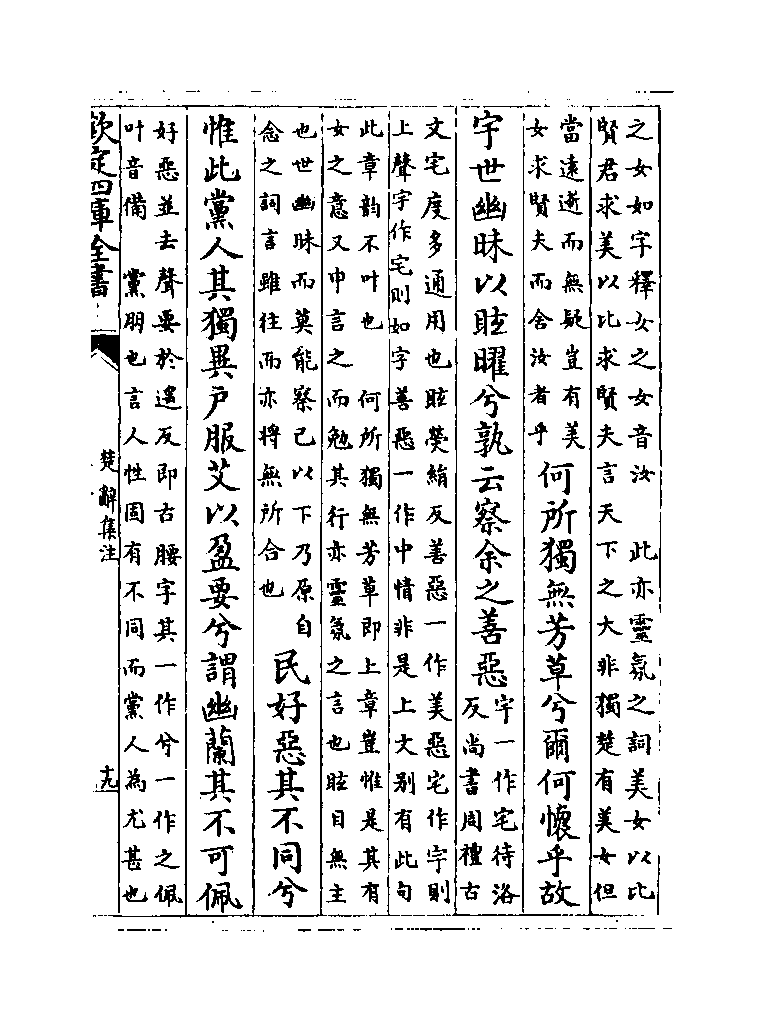 之女如字釋女之女音汝　此亦靈氛之詞美女以比
賢君求美以比求賢夫言天下之大非獨楚有美女但
當遠逝而無疑豈有美
女求賢夫而舍汝者乎
何所獨無芳草兮爾何懷乎故
宇世幽昧以眩曜兮孰云察余之善惡
宇一作宅待洛
反尚書周禮古
文宅度多通用也眩熒絹反善惡一作美惡宅作宇則
上聲宇作宅則如字善惡一作中情非是上文别有此句
此章韵不叶也　何所獨無芳草即上章豈惟是其有
女之意又申言之而勉其行亦靈氛之言也眩目無主
也世幽昧而莫能察已以下乃原自
念之詞言雖往而亦將無所合也
民好惡其不同兮
惟此黨人其獨異户服艾以盈要兮謂幽蘭其不可佩
好惡並去聲要於遥反即古腰字其一作兮一作之佩
叶音備　黨朋也言人性固有不同而黨人為尤甚也
欽定四庫全書
楚辭集注
十九